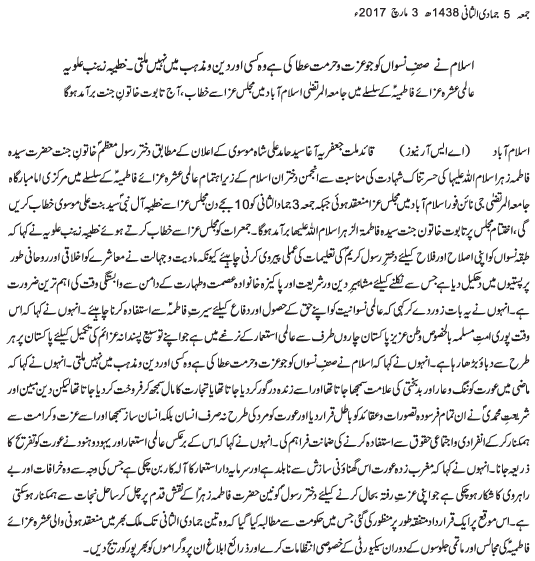 جمعہ 5 جمادی الثانی 1438ھ 3 مارچ 2017ء
اسلام نے صنفِ نسواں کو جو عزت و حرمت عطا کی ہے وہ کسی اور دین و مذہب میں نہیں ملتی۔ خطیبہ زینب علویہ
عالمی عشرہ عزائے فاطمیہؑ کے سلسلے میں جامعۃ المرتضیٰ اسلام آباد میں مجلس عزا سے خطاب، آج تابوت خاتونِ جنت برآمد ہوگا
اسلام آباد (اے ایس آر نیوز) قائد ملت جعفریہ آغا سید حامد علی شاہ موسوی کے اعلان کے مطابق دختر رسول معظمؐ خاتون جنت حضرت سیدہ
فاطمہ زہرا سلام اللہ علیہا کی حسرتناک شہادت کی مناسبت سے انجمن دختران اسلام کے زیر اہتمام عالمی عشرہ عزائے فاطمیہؑ کے سلسلے میں مرکزی امامبارگاہ
جامعۃ المرتضیٰ جی نائن فور اسلام آباد میں مجلس عزا منعقد ہوئی جبکہ جمعہ 3 جماد الثانی کو 10 بجے دن مجلس عزا سے خطیبہ آل نبیؐ سیدہ بنت علی موسوی خطاب کریں
گی، اختتام مجلس پر تابوت خاتون جنت سیدہ فاطمۃ الزہرا سلام اللہ علیہا برآمد ہوگا۔ جمعرات کو مجلس عزا سے خطاب کرتے ہوئے خطیبہ زینب علویہ نے کہا کہ
طبقہ نسواں کو اپنی اصلاح اور فلاح کیلئے دختر رسول کریمؐ کی تعلیمات کی عملی پیروی کرنی چاہیئے کیونکہ مادیت و جہالت نے معاشرے کو اخلاقی اور روحانی طور
پر پستیوں میں دھکیل دیا ہے جس سے نکلنے کیلئے مشاہیر دین و شریعت اور پاکیزہ خانوادہ عصمت و طہارت کے دامن سے وابستگی وقت کی اہم ترین ضرورت
ہے۔ انہوں نے یہ بات زور دے کر کہی کہ عالمی نسوانیت کو اپنے حق کے حصول اور دفاع کیلئے سیرت فاطمہؑ سے استفادہ کرنا چاہیئے۔ انہوں نے کہا کہ اس
وقت پوری امت مسلمہ بالخصوص وطن عزیز پاکستان چاروں طرف سے عالمی استعمار کے نرغے میں ہے جو اپنے توسیع پسندانہ عزائم کی تکمیل کیلئے پاکستان پر ہر
طرح سے دباؤ بڑھا رہا ہے۔ انہوں نے کہا کہ اسلام نے صنف نسواں کو جو عزت و حرمت عطا کی ہے وہ کسی اور دین و مذہب میں نہیں ملتی۔ انہوں نے کہا کہ
ماضی میں عورت کو ننگ و عار اور بدبختی کی علامت سمجھا جاتا تھا اور اسے زندہ درگور کر دیا جاتا تھا یا تجارت کا مال سمجھ کر فروخت کر دیا جاتا تھا لیکن دین مبین اور
شریعت محمدیؐ نے ان تمام فرسودہ تصورات و عقائد کو باطل قرار دیا اور عورت کو مرد کی طرح نہ صرف انسان بلکہ انسان ساز سمجھا اور اسے عزت و کرامت سے
ہمکنار کر کے انفرادی و اجتماعی حقوق سے استفادہ کرنے کی ضمانت فراہم کی۔ انہوں نے کہا کہ اس کے برعکس عالمی استعمار اور یہود و ہنود نے عورت کو تفریح کا
ذریعہ جانا۔ انہوں نے کہا کہ مغرب زدہ عورت اس گھناؤنی سازش سے نابلد ہے اور سرمایہ دار استعمار کا آلہ کار بن چکی ہے جس کی وجہ سے وہ خرافات اور بے
راہروی کا شکار ہو چکی ہے جو اپنی عزت رفتہ بحال کرنے کیلئے دختر رسول کونین حضرت فاطمہ زہراؑ کے نقش قدم پر چل کر ساحل نجات سے ہمکنار ہو سکتی
ہے۔ اس موقع پر ایک قرارداد متفقہ طور پر منظور کی گئی جس میں حکومت سے مطالبہ کیا گیا کہ وہ تین جمادی الثانی تک ملک بھر میں منعقد ہونی والی عشرہ عزائے
فاطمیہؑ کی مجالس اور ماتمی جلوسوں کے دوران سیکیورٹی کے خصوصی انتظامات کرے اور ذرائع ابلاغ ان پروگراموں کو بھرپور کوریج دیں۔